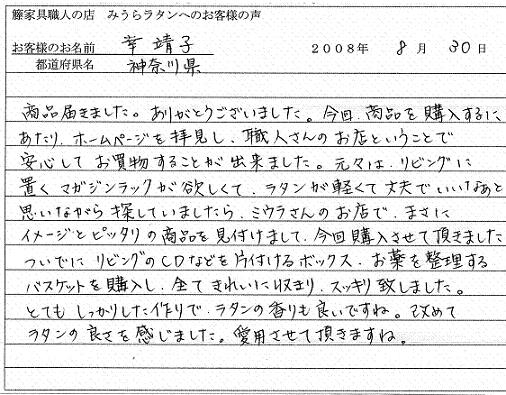 籐家具職人の店　みうらラタンへのお客様の声
お客様のお名前　幸 靖子　2008年 8月 30日
都道府県名　神奈川県
商品届きました。ありがとうございました。今回、商品を購入するに
あたり、ホームページを拝見し、職人さんのお店ということで
安心してお買物することが出来ました。元々は、リビングに
置くマガジンラックが欲しくて、ラタンが軽くて丈夫でいいなあと
思いながら探していましたら、ミウラさんのお店で、まさに
イメージとピッタリの商品を見付けまして、今回購入させて頂きました
ついでにリビングのCDなどを片付けるボックス、お薬を整理する
バスケットを購入し、全てきれいに収まり、スッキリ致しました。
とてもしっかりした作りで、ラタンの香りも良いですね。改めて
ラタンの良さを感じました。愛用させて頂きますね。